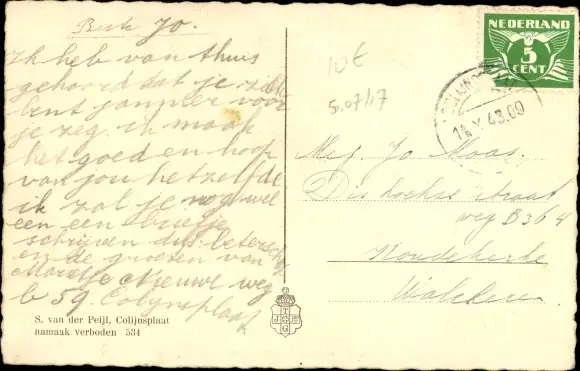 Beste Jo.
Ik heb van thuis
gehoord dat je ziek
bent jammer voor
je zeg. ik maak
het goed en hoop
van jou hetzelfde
ik zal je nog wel
een een briefje
schrijven dus beterschap
en de groeten van
Maretje Nieuwe weg
b 59. Colijnsplaat
S. van der Peijl, Colijnsplaat
namaak verboden 534
T
G
NEDERLAND
5
CENT
14 X 43.09
10€
5.07/17
Mej. Jo Maas.
straat
weg B364
Koudekerke
Walcheren.